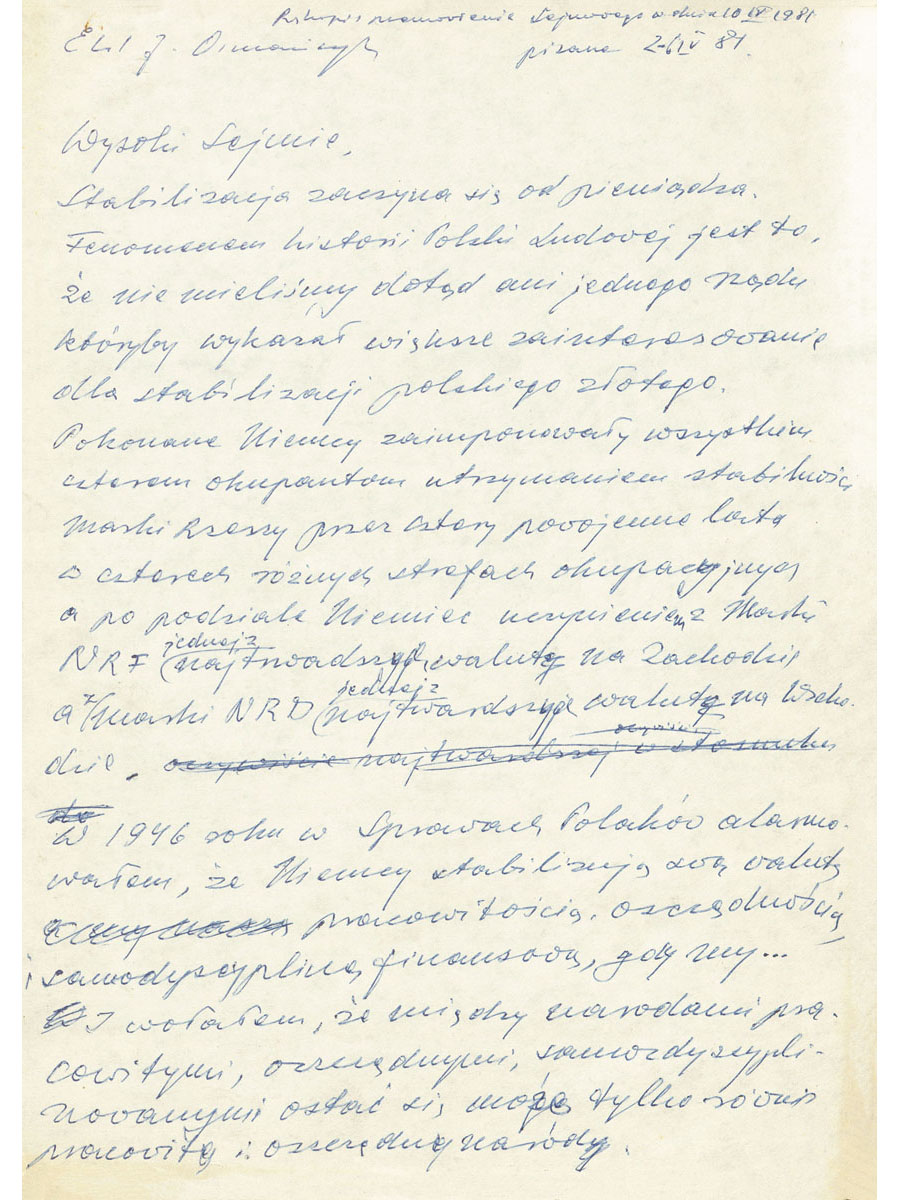 Rękopis przemówienia Sejmowego w dniu 10 IV 1981
Edmund J. Osmańczyk
pisane 2-6 IV 81.
Wysoki Sejmie,
Stabilizacja zaczyna się od pieniądza.
Fenomenem historii Polski Ludowej jest to,
że nie mieliśmy dotąd ani jednego rządu
któryby wykazał większe zainteresowanie
dla stabilizacji polskiego złotego.
Pokonane Niemcy zaimponowały wszystkim
czterem okupantom utrzymaniem stabilności
Marki Rzeszy przez cztery powojenne lata
w czterech różnych strefach okupacyjnych
a po podziale Niemiec uczynieniem z Marki
jednej z
NRF najtwardszych walut na Zachodzie
jednej z
a z Marki NRD najtwardszych walut na Wscho-
oczywiście
dzie. oczywiście najtwardszej w stosunku
do
W 1946 roku w Sprawach Polaków alarmo-
wałem, że Niemcy stabilizują swą walutę
a my nasza pracowitością, oszczędnością,
i samodyscypliną finansową, gdy my...
I wołałem, że między narodami pra-
cowitymi, oszczędnymi, samozdyscypli-
nowanymi ostać się mogą tylko równie
pracowite i oszczędne narody.